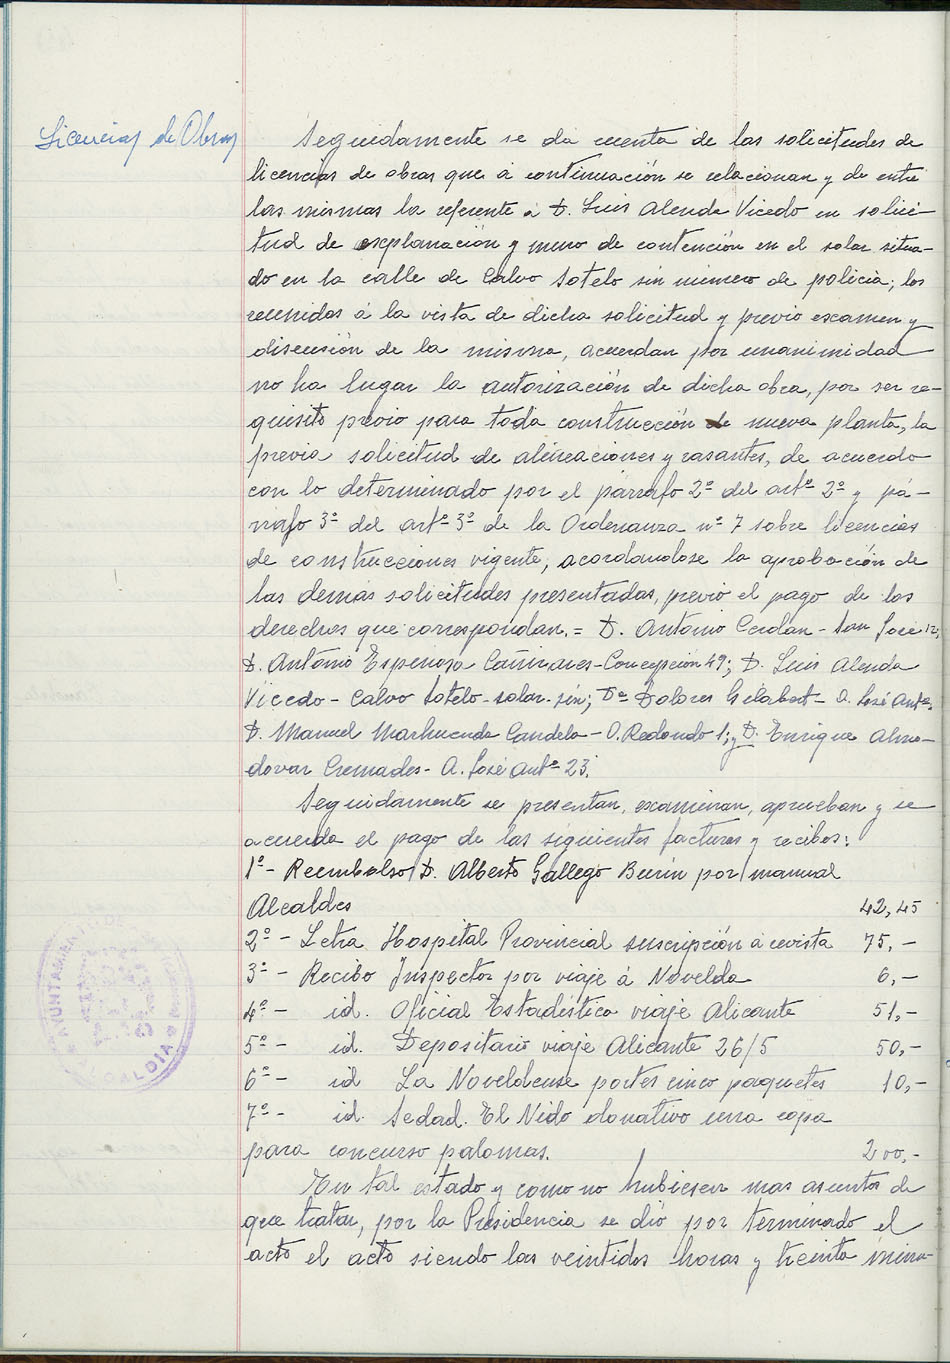 Licencias de Obras
Seguidamente se da cuenta de las solicitudes de
licencias de obras que á continuación se relacionan y de entre
las mismas la referente á D. Luis Alenda Vicedo en solici-
tud de explanación y muro de contención en el solar situa-
do en la calle de Calvo Sotelo sin número de policia; los
reunidos á la vista de dicha solicitud y previo escamen y
discusión de la misma, acuerdan por unanimidad
no ha lugar la autorización de dicha obra, por ser re-
quisito previo para toda construcción de nueva planta, la
previa solicitud de alineaciones y rasantes, de acuerdo
con lo determinado por el párrafo 2º del artº 2º y pá-
rrafo 3º del artº 3º de la Ordenanza nº 7 sobre licencias
de construcciones vigente, acordandose la aprobación de
las demás solicitudes presentadas, previo el pago de los
derechos que correspondan.= D. Antonio Cerdan - San José 12;
D. Antonio Espinosa Cañizares - Concepción 49; D. Luis Alenda
Vicedo - Calvo Sotelo - solar - s/n; Dª Dolores Gilabert - A. José Antº.
D. Manuel Marhuenda Candela - O. Redondo 1; y D. Enrique Almo-
dovar Cremades - A. José Antº 23.
Seguidamente se presentan, examinan, aprueban y se
acuerda el pago de las siguientes facturas y recibos:
1º - Reembolso D. Alberto Gallego Burin por manual
Alcaldes 42,45
2º - Letra Hospital Provincial suscripción á revista 75,-
3º - Recibo Inspector por viaje á Novelda 6,-
4º - id. Oficial Estadistica viaje Alicante 51,-
5º - id. Depositario viaje Alicante 26/5 50,-
6º - id La Noveldense portes cinco paquetes 10,-
7º - id. Sedad. El Nido donativo una copa
para concurso palomas. 200,-
En tal estado y como no hubiesen mas asuntos de
que tratar, por la Presidencia se dió por terminado el
acto el acto siendo las veintidos horas y treinta minu-
AYUNTAMIENTO DE
ALCALDIA